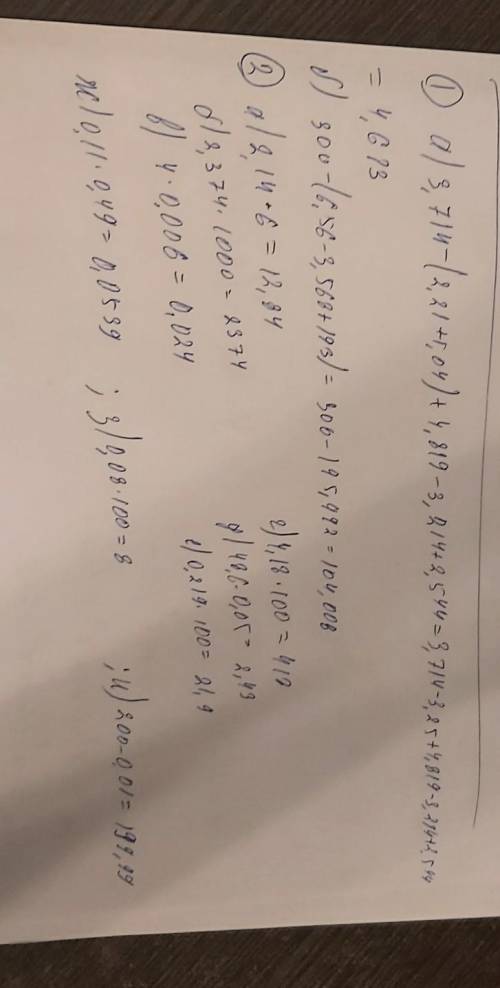 ① а) 3,714-(2,21+5,04)+4,819-3,214+2,544=3,714-3,25+4,819-3,214+2,544
= 4,623
б) 300-(6,56-3,568+193)=300-195,992=104,008
② а) 2,14·6=12,84
г) 4,18·100=418
б) 2,374·1000=2374
д) 48,6·0,05=2,43
в) 4·0,006=0,024
е) 0,219·100=21,9
ж) 0,11·0,49=0,0539 ; з) 0,08·100=8 ; и) 200-0,01=199,99